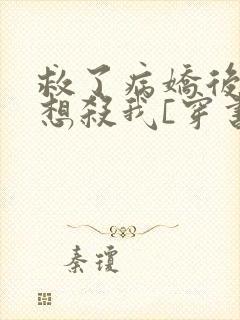 救了病嬌後
想殺我[穿書
秦瓊